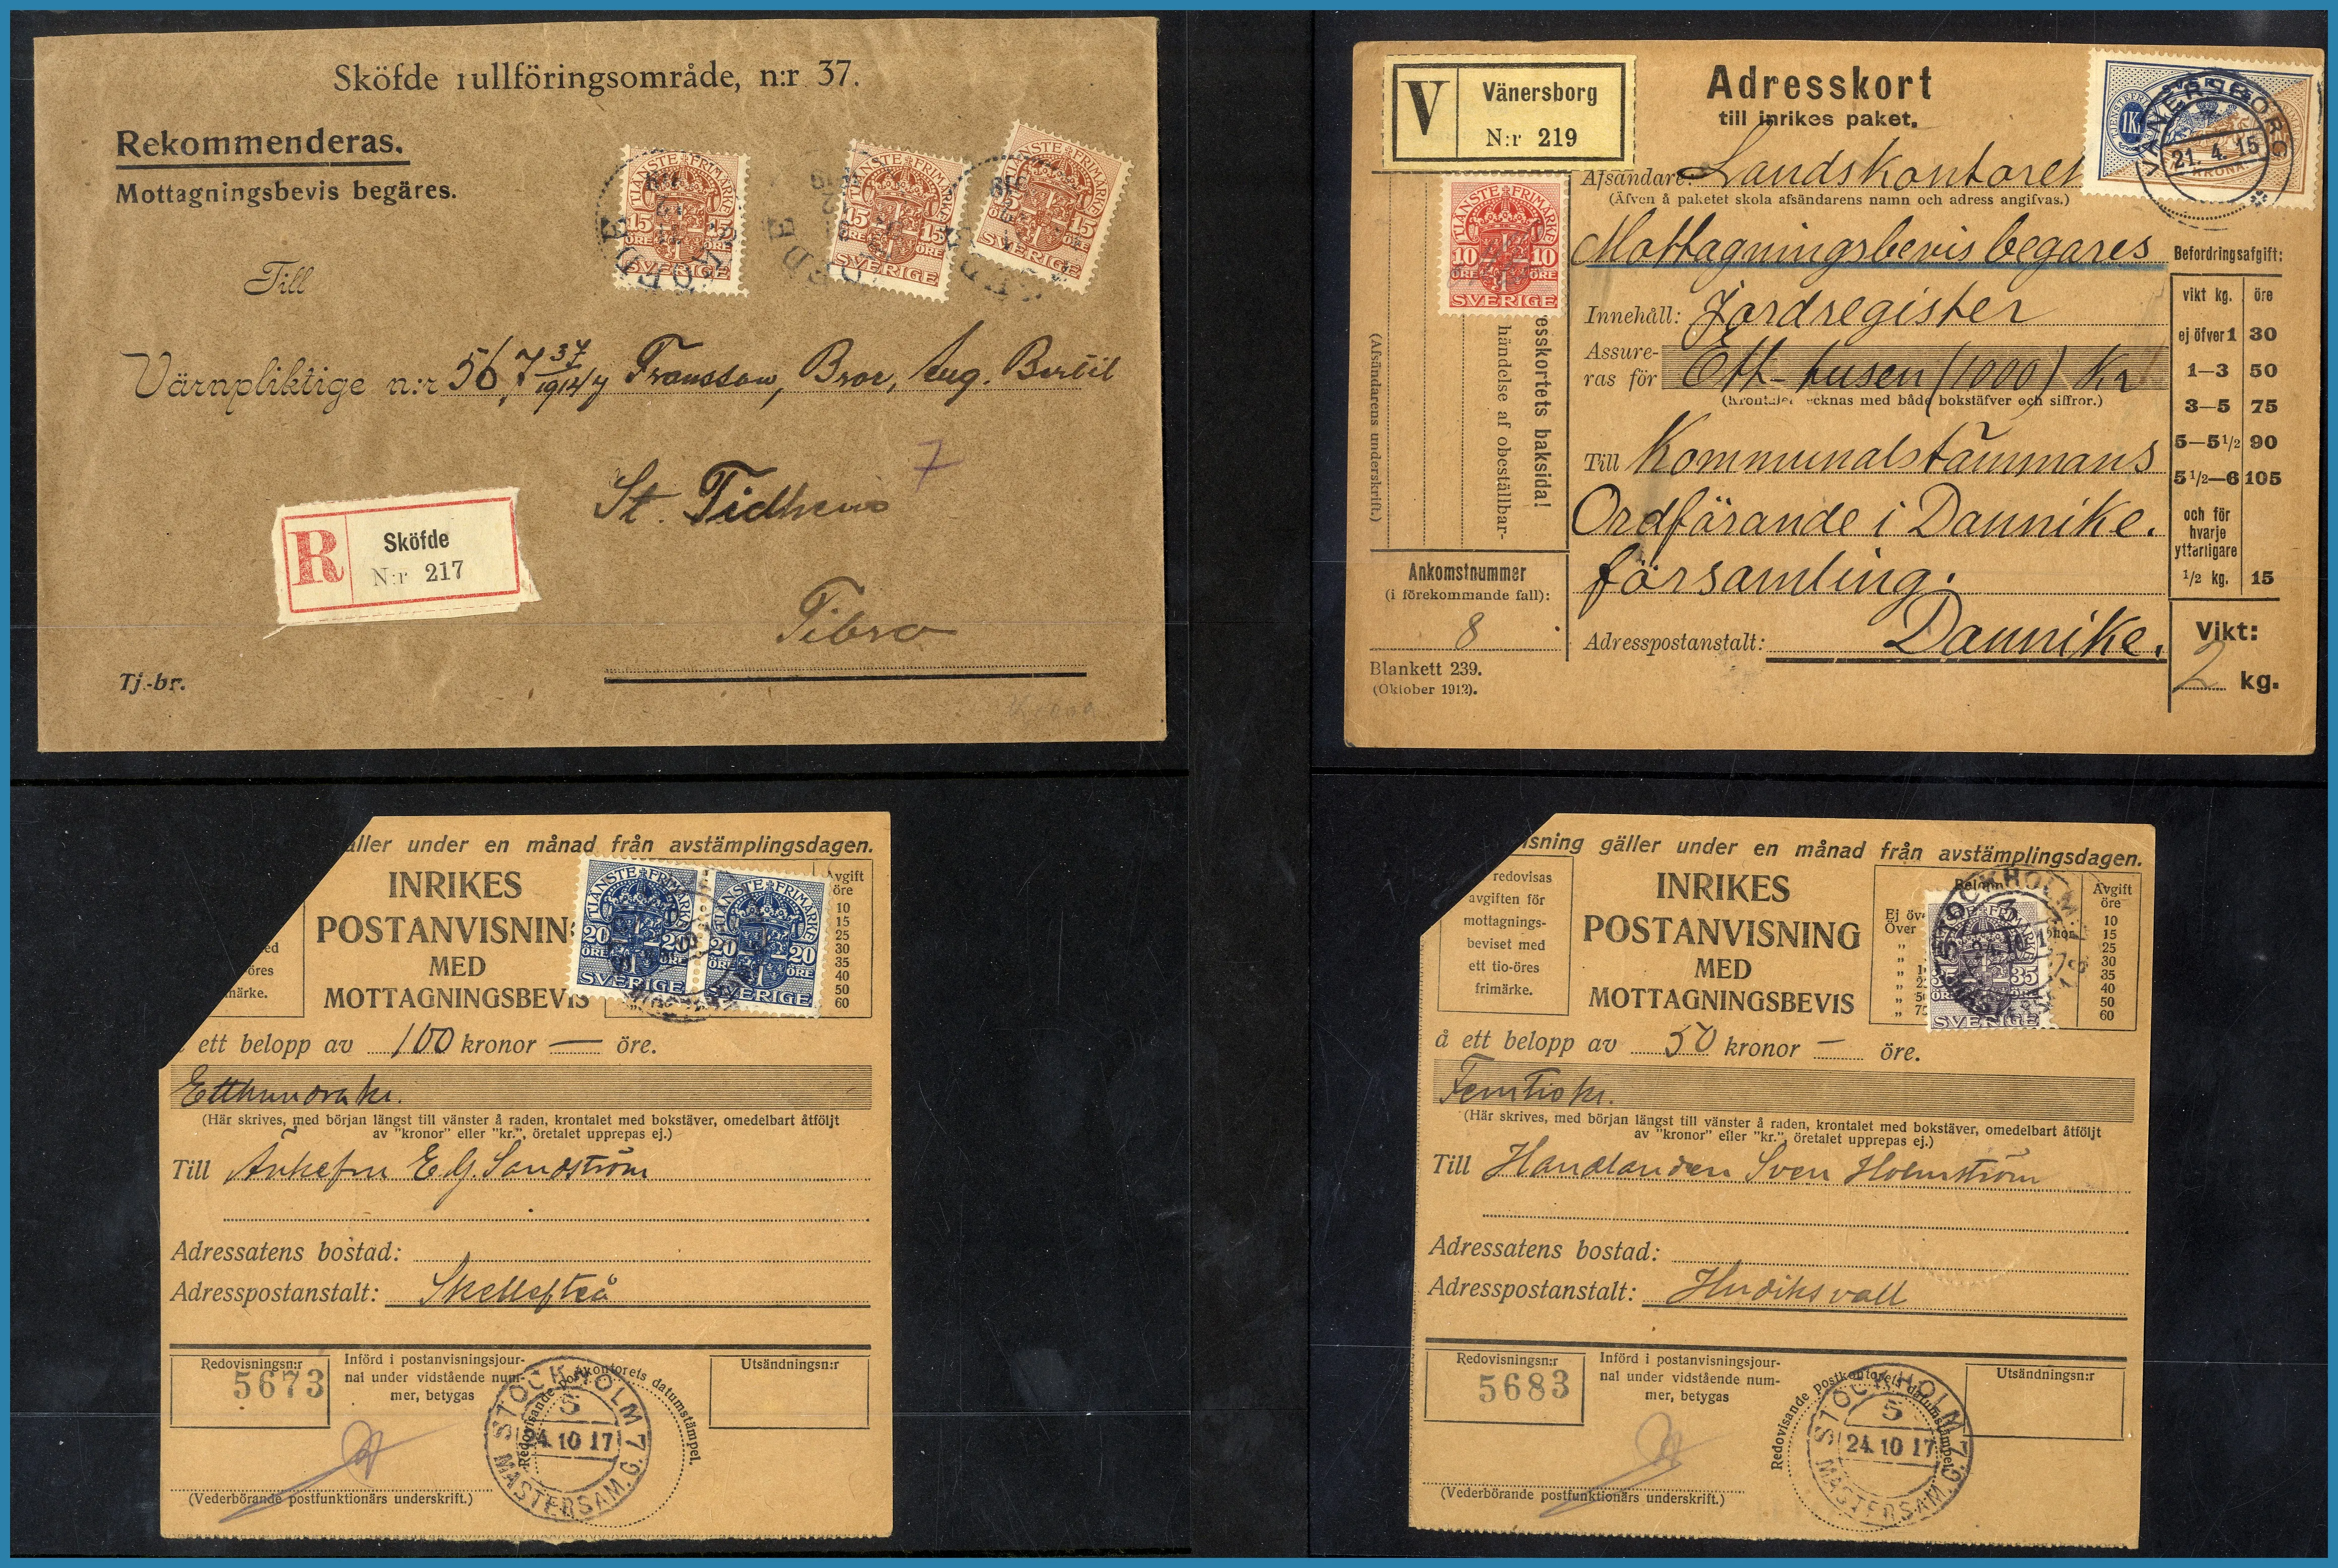 Sköfde rullföringsområde, n:r 37.
Rekommenderas.
Mottagningsbevis begäres.
TJÄNSTE FRIMÄRKE
15 15
ÖRE ÖRE
SVERIGE
TJÄNSTE FRIMÄRKE
15 15
ÖRE ÖRE
SVERIGE
TJÄNSTE FRIMÄRKE
15 15
SVERIGE
Till
Värnpliktige n:r 567 37/1914 Franssow, Bror, Aug. Bertil
7
Tibro
R
Sköfde
N:r 217
Tj.-br.
V
Vänersborg
N:r 219
Adresskort
till inrikes paket.
VÄNERSBORG
21. 4. 15
1 KR
Afsändare: Landskontoret
(Äfven å paketet skola afsändarens namn och adress angifvas.)
TJÄNSTE FRIMÄRKE
10 10
ÖRE ÖRE
SVERIGE
Mottagningsbevis begäres
Innehåll: Jordregister
Assure-
ras för Ett tusen (1000) Kr
tecknas med både bokstäfver och siffror.)
Till Kommunalstämmans
Ordförande i Dannike.
församling.
Adresspostanstalt: Dannike.
(Afsändarens underskrift.)
händelse af obeställbar-
esskortets baksida!
Ankomstnummer
(i förekommande fall):
8
Blankett 239.
(Oktober 1912).
Befordringsafgift:
vikt kg. öre
ej öfver 1 30
1—3 50
3—5 75
5—5 1/2 90
5 1/2—6 105
och för
hvarje
ytterligare
1/2 kg. 15
Vikt:
2 kg.
äller under en månad från avstämplingsdagen.
INRIKES
POSTANVISNIN
MED
MOTTAGNINGSBEVIS
ed
öres
märke.
TJÄNSTE FRIMÄRKE
20 20
ÖRE ÖRE
SVERIGE
TJÄNSTE FRIMÄRKE
20 20
ÖRE ÖRE
SVERIGE
Avgift
öre
10
15
25
30
35
40
50
60
ett belopp av 100 kronor — öre.
Etthundra kr.
(Här skrives, med början längst till vänster å raden, krontalet med bokstäver, omedelbart åtföljt
av "kronor" eller "kr.", öretalet upprepas ej.)
Till Änkefru E. G. Sandström
Adressatens bostad:
Adresspostanstalt: Skellefteå
Redovisningsn:r
5673
Införd i postanvisningsjour-
nal under vidstående num-
mer, betygas
Utsändningsn:r
Redovisande postkontorets datumstämpel.
STOCKHOLM 7
5
24.10 17
MÄSTERSAM.G.
(Vederbörande postfunktionärs underskrift.)
isning gäller under en månad från avstämplingsdagen.
redovisas
avgiften för
mottagnings-
beviset med
ett tio-öres
frimärke.
INRIKES
POSTANVISNING
MED
MOTTAGNINGSBEVIS
Belopp
Ej öv
Över
STOCKHOLM
35
SVERIGE
Avgift
öre
10
15
25
30
35
40
50
60
å ett belopp av 50 kronor — öre.
Femtio kr.
(Här skrives, med början längst till vänster å raden, krontalet med bokstäver, omedelbart åtföljt
av "kronor" eller "kr.", öretalet upprepas ej.)
Till Handlanden Sven Holmström
Adressatens bostad:
Adresspostanstalt: Hudiksvall
Redovisningsn:r
5683
Införd i postanvisningsjour-
nal under vidstående num-
mer, betygas
Utsändningsn:r
Redovisande postkontorets datumstämpel.
STOCKHOLM 7
5
24.10 17
MÄSTERSAM.G.
(Vederbörande postfunktionärs underskrift.)